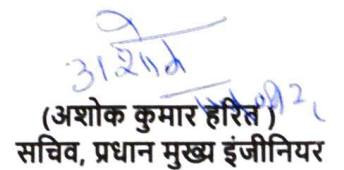 अशोक
(अशोक कुमार हरित )
सचिव, प्रधान मुख्य इंजीनियर